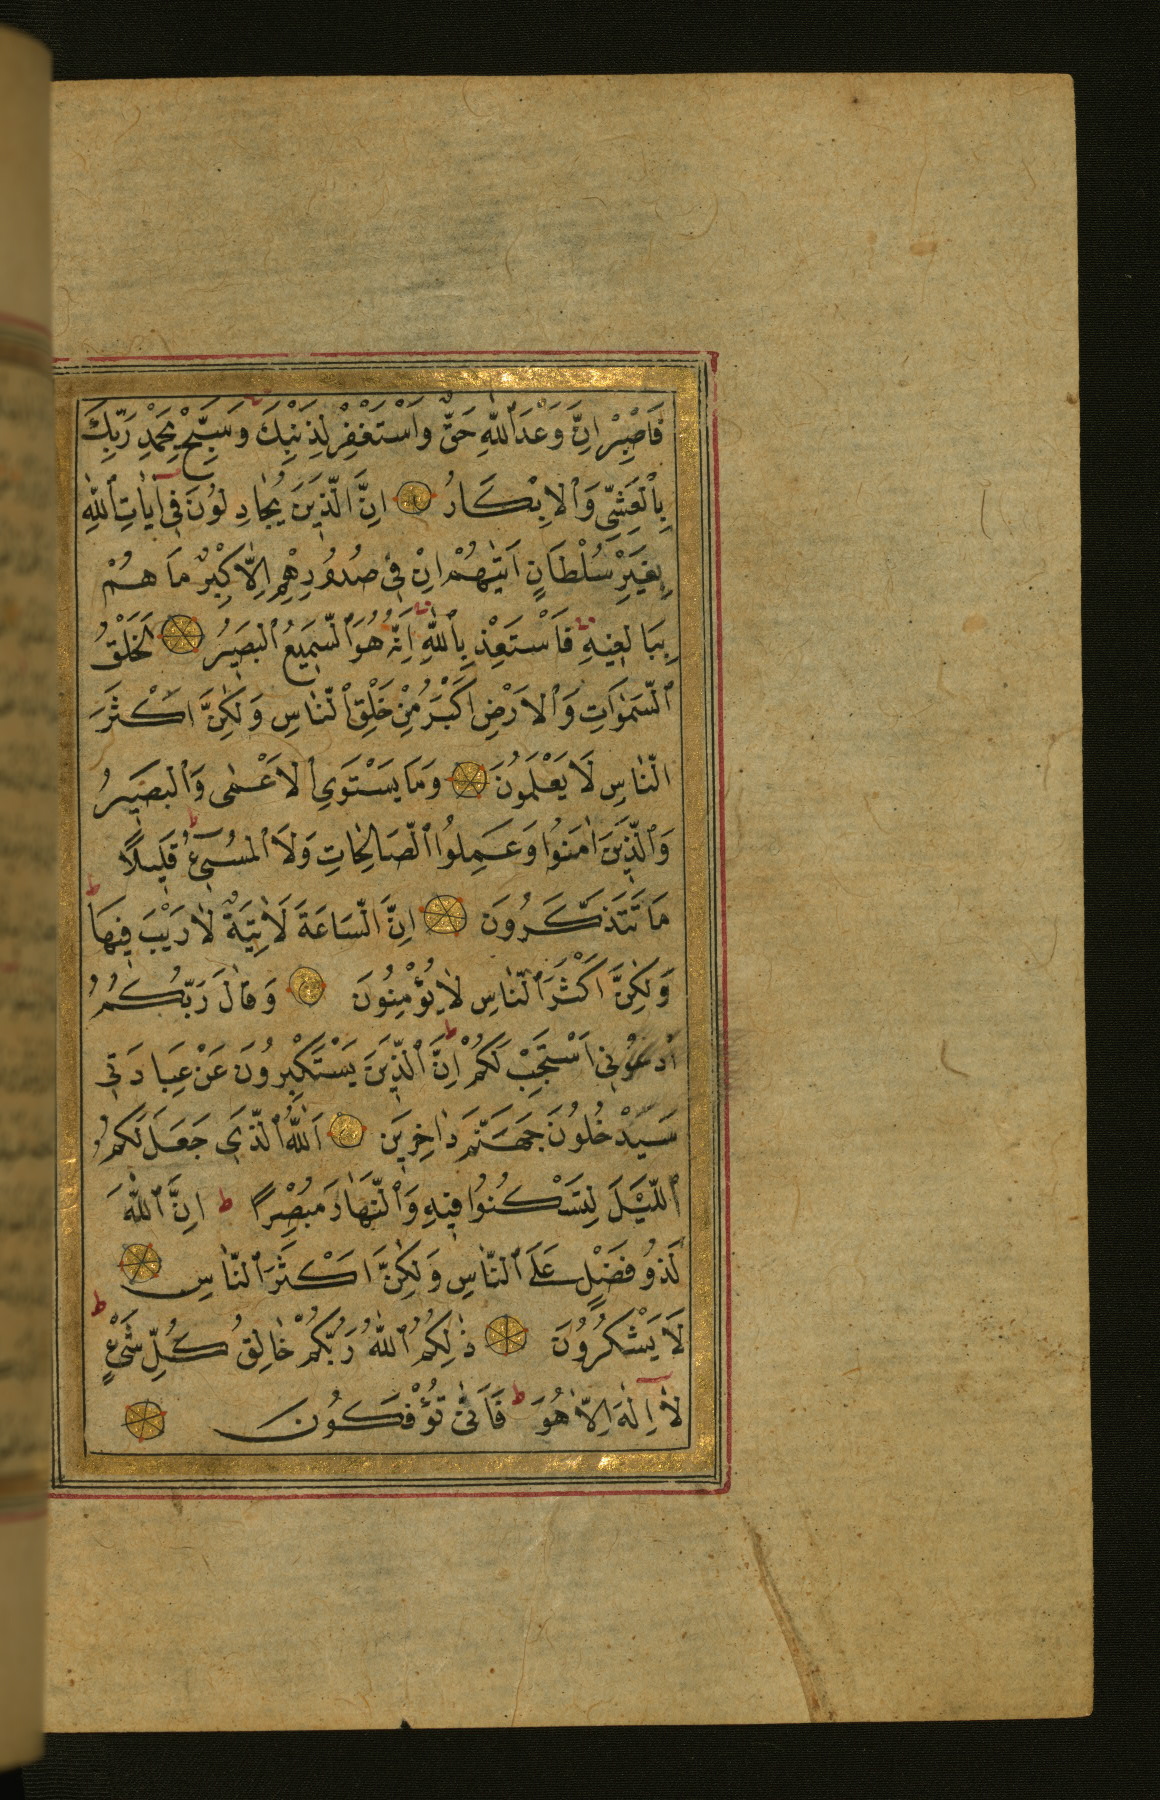 فَاصْبِرْ اِنَّ وَعْدَ ٱللّٰهِ حَقٌّ وَاسْتَغْفِرْ لِذَنْبِكَ وَسَبِّحْ بِحَمْدِ رَبِّكَ
بِالْعَشِيِّ وَٱلْاِبْكَارِ ۝ اِنَّ الَّذِينَ يُجَادِلُونَ فِي اٰيَاتِ ٱللّٰهِ
بِغَيْرِ سُلْطَانٍ اَتٰيهُمْ اِنْ فِي صُدُورِهِمْ اِلَّا كِبْرٌ مَا هُمْ
بِبَالِغِيهِ فَاسْتَعِذْ بِٱللّٰهِ اِنَّهُ هُوَ ٱلسَّمِيعُ ٱلْبَصِيرُ ۝ لَخَلْقُ
ٱلسَّمٰوَاتِ وَٱلْاَرْضِ اَكْبَرُ مِنْ خَلْقِ ٱلنَّاسِ وَلٰكِنَّ اَكْثَرَ
النَّاسِ لَا يَعْلَمُونَ ۝ وَمَا يَسْتَوِي ٱلْاَعْمٰى وَٱلْبَصِيرُ
وَٱلَّذِينَ اٰمَنُوا وَعَمِلُوا ٱلصَّالِحَاتِ وَلَا ٱلْمُسِيٓءُ ط قَلِيلًا
مَا تَتَذَكَّرُونَ ۝ اِنَّ السَّاعَةَ لَاٰتِيَةٌ لَا رَيْبَ فِيهَا ط
وَلٰكِنَّ اَكْثَرَ ٱلنَّاسِ لَا يُؤْمِنُونَ ۝ وَقَالَ رَبُّكُمُ
ادْعُونِي اَسْتَجِبْ لَكُمْ ط اِنَّ ٱلَّذِينَ يَسْتَكْبِرُونَ عَنْ عِبَادَتِي
سَيَدْخُلُونَ جَهَنَّمَ دَاخِرِينَ ۝ اَللّٰهُ ٱلَّذِي جَعَلَ لَكُمُ
ٱللَّيْلَ لِتَسْكُنُوا فِيهِ وَٱلنَّهَارَ مُبْصِرًا ط اِنَّ ٱللّٰهَ
لَذُو فَضْلٍ عَلَى ٱلنَّاسِ وَلٰكِنَّ اَكْثَرَ ٱلنَّاسِ ۝
لَا يَشْكُرُونَ ۝ ذٰلِكُمُ ٱللّٰهُ رَبُّكُمْ خَالِقُ كُلِّ شَيْءٍ ط
لَا اِلٰهَ اِلَّا هُوَ ط فَاَنّٰى تُؤْفَكُونَ ۝